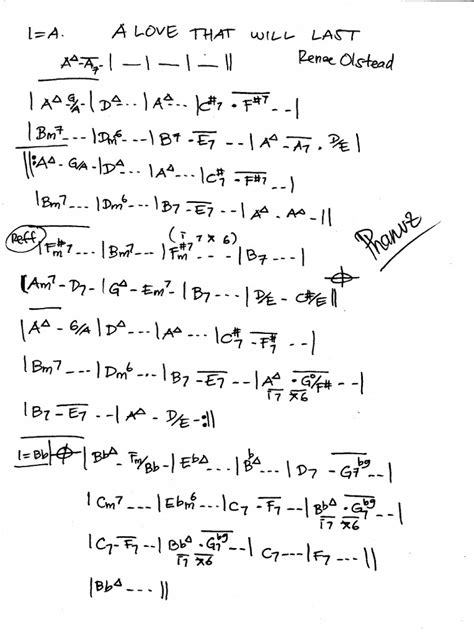 1=A. A LOVE THAT WILL LAST
Renee Olstead
A△-A7-| — | — | — ||
| A△ G/A-| D△...| A△...| C#7 . F#7 --|
| Bm7...| Dm6...| B7 - E7 --| A△ - A7 . D/E |
||:A△ - G/A-| D△...| A△...| C#7 - F#7 --|
| Bm7...| Dm6...| B7 - E7 --| A△ - A△ -||
Reff (i 7 x 6)
| F#m7...| Bm7...| F#m7 ...| B7 ---|
| Am7 - D7 -| G△ - Em7 -| B7 ...| D/E - C#/E ||
| A△ - G/A | D△...| A△...| C#7 - F#7 --|
| Bm7 ---| Dm6 ...| B7 - E7 --| A△ . G°/F# --|
i7 x6
| B7 - E7 --| A△ - D/E -:||
1=Bb | Bb△ - Fm/Bb -| Eb△...| Bb△...| D7 - G7b9 --|
| Cm7 ...| Ebm6 ...| C7 - F7 --| Bb△ . G7b9 --|
i7 x6
| C7 - F7 --| Bb△ . G7b9 --| C7 ---| F7 ---||
i7 x6
| Bb△ ... ||